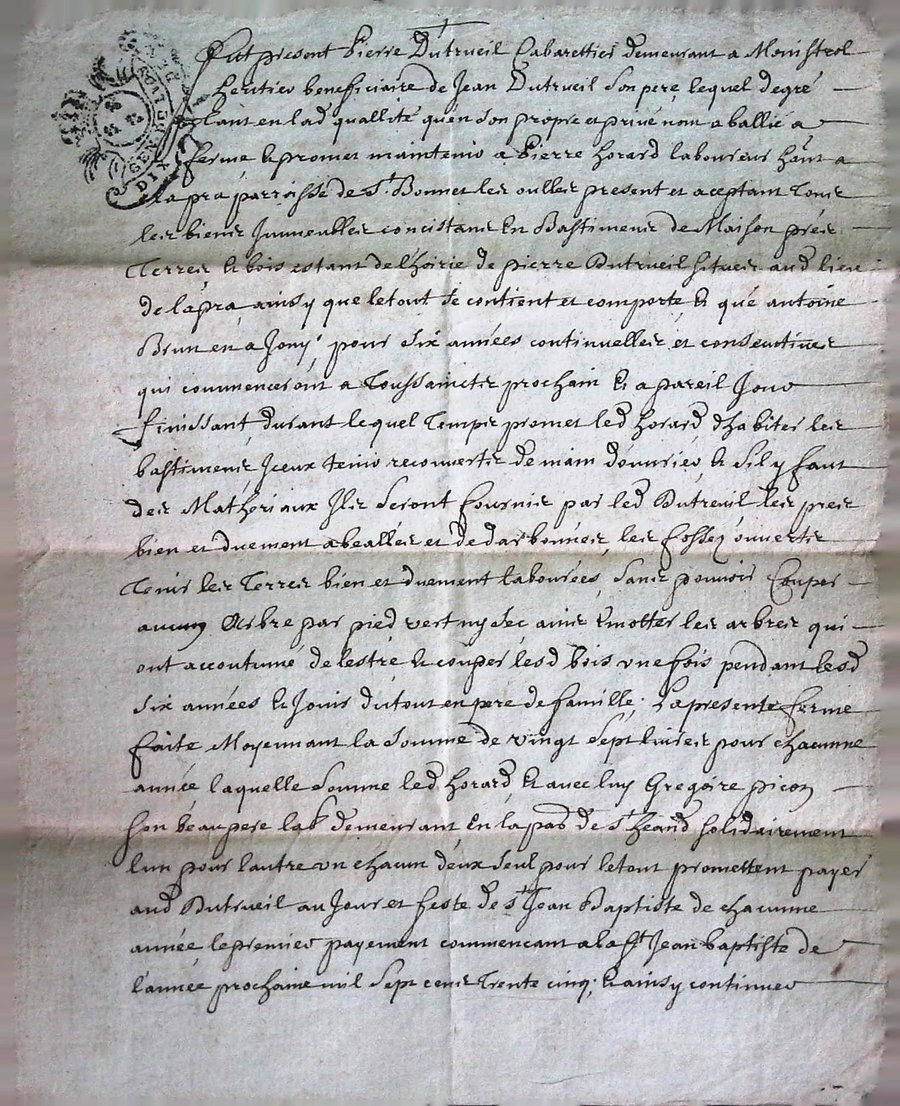 GEN DE LYON
DIX D
Fut present Pierre Dutrueil Cabarettier demeurant a Monistrol
heritier beneficiaire de Jean Dutrueil son pere, lequel de gré
tant en lad quallitté qu'en son propre et privé nom a ballié a
ferme & promet maintenir a Pierre horard laboureur hant a
la pra parroisse de St Bonnet les oulles present et aceptant Tous
les biens Jmmeubles concistant En Bastiments de Maison prés
Terres & bois estant de lhoirie de pierre Dutrueil situés aud lieu
de la pra, ainsy que le tout se contient et comporte, & que antoine
Brun en a Jouy, pour six années continuelles et consecutives
qui commenceront a Toussaincts prochain & a pareil Jour
finissant, durant lequel Temps promet led horard dhabiter les
bastiments, Jceux tenir recouverts de main d'ouvrier, & sil y faut
des Matheriaux Ils seront fournis par led Dutreuil les prés
bien et duement abeallés et dedarbonnés, les fossez ouverts
Tenir les Terres bien et duement labourées, sans pouvoir Couper
aucun Arbre par pied vert ny sec ains Emotter les arbres qui
ont accoutumé de lestre, & couper lesd bois une fois pendant lesd
six années & Jouir du tout en pere de famille; La presente ferme
faite Moyennant la somme de vingt sept livres pour chacunne
année, laquelle somme led horard, & avec luy Gregoire picon
son beaupere lab demeurant En la pad de St heand solidairement
lun pour l'autre un chacun deux seul pour le tout promettent payer
aud Dutrueil au Jour et feste de St Jean Baptiste de chacunne
année, le premier payement commencant a la St Jean baptiste de
l'année prochaine mil sept cent Trente cinq, & ainsy continuer